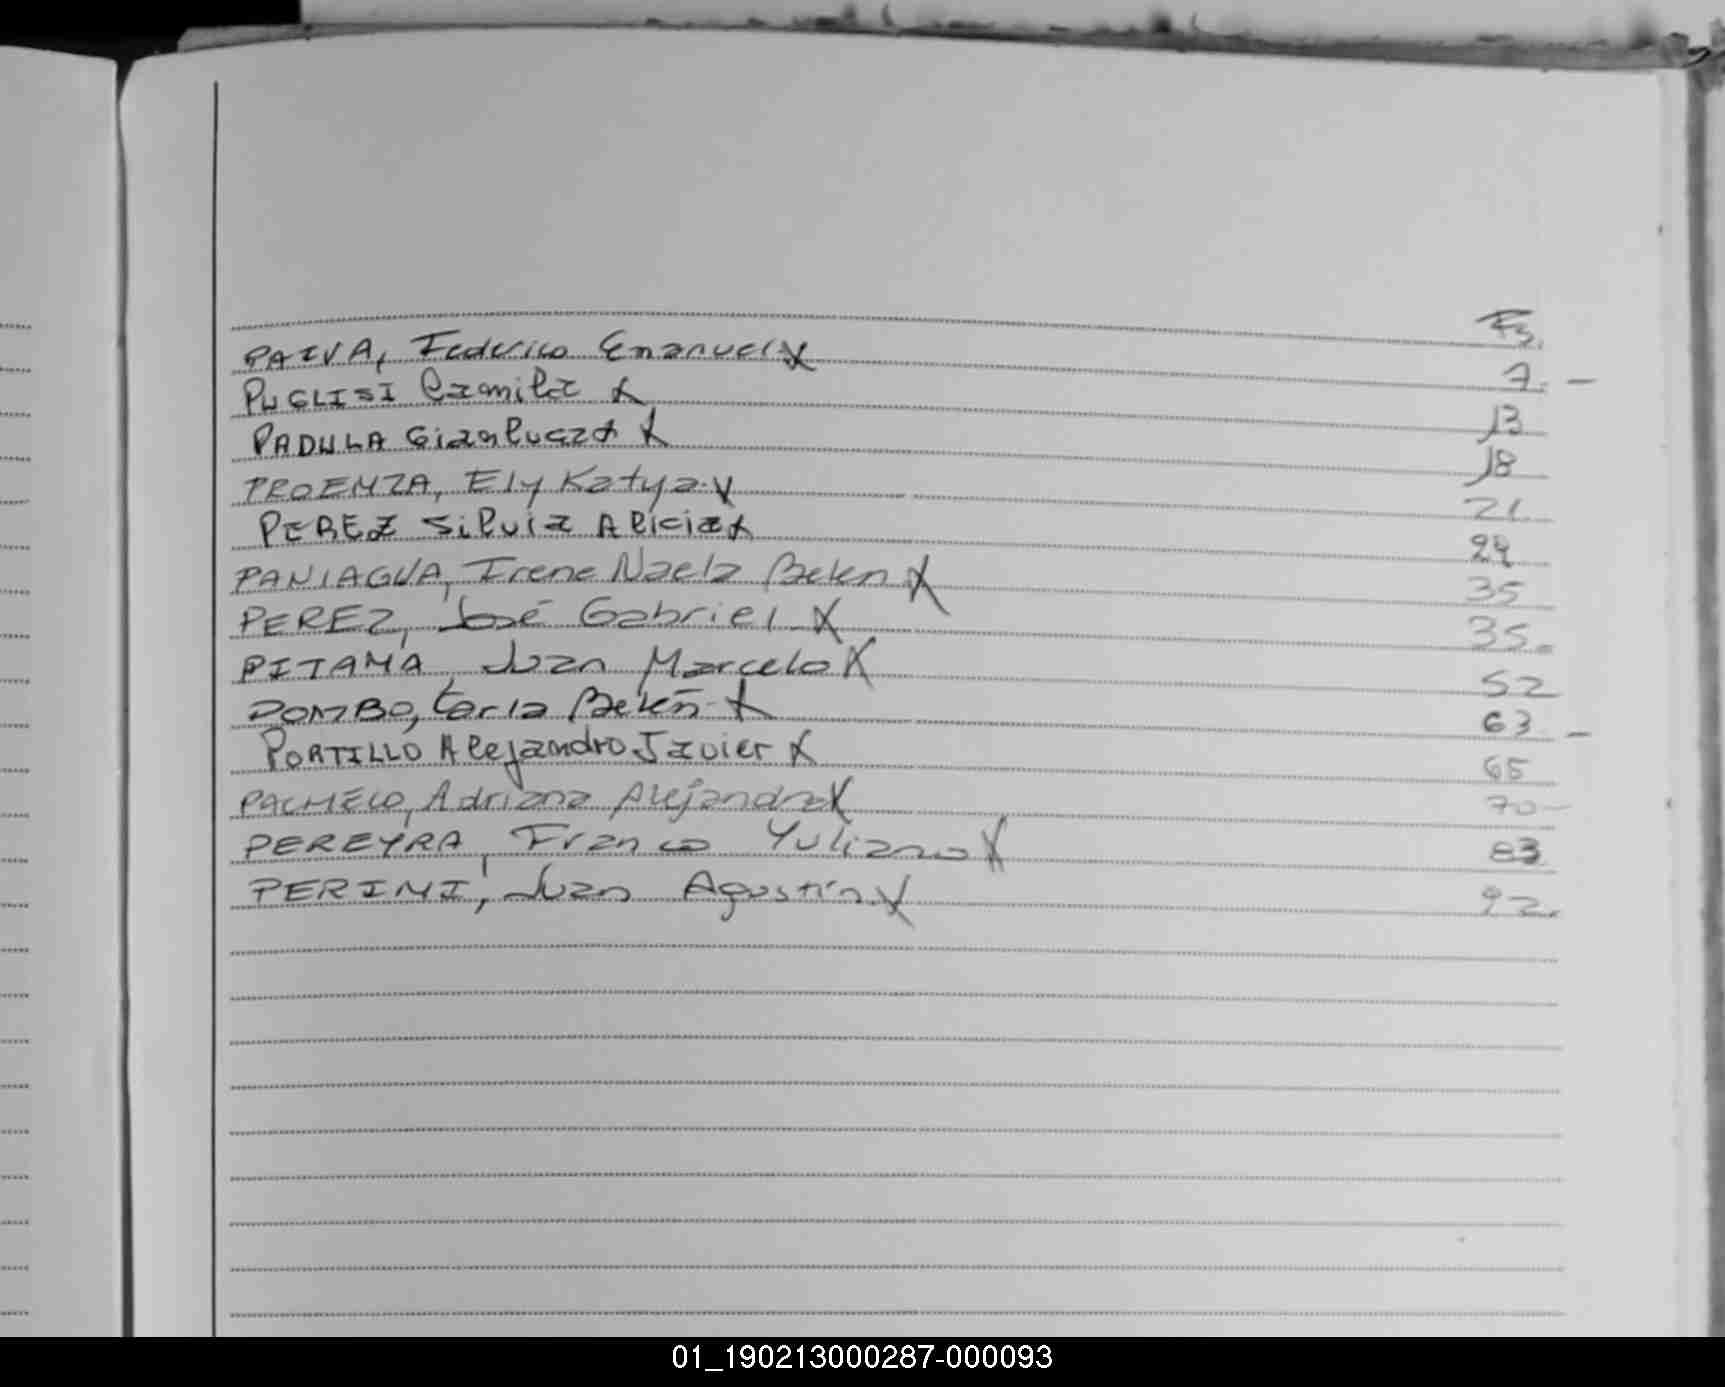 Fs.
PAIVA, Federico Emanuel X 7. -
PUGLISI Camila X 13
PADULA Gianluca X 18
PROENZA, Ely Katya. X 21
PEREZ Silvia Alicia X 29
PANIAGUA, Irene Naela Belen X 35
PEREZ, José Gabriel X 35.
PITAMA, Juan Marcelo X 52
POMBO, Carla Belén X 63 -
PORTILLO Alejandro Javier X 65
PACHECO, Adriana Alejandra X 70 -
PEREYRA, Franco Yuliano X 83
PERINI, Juan Agustín X 92.
01_190213000287-000093